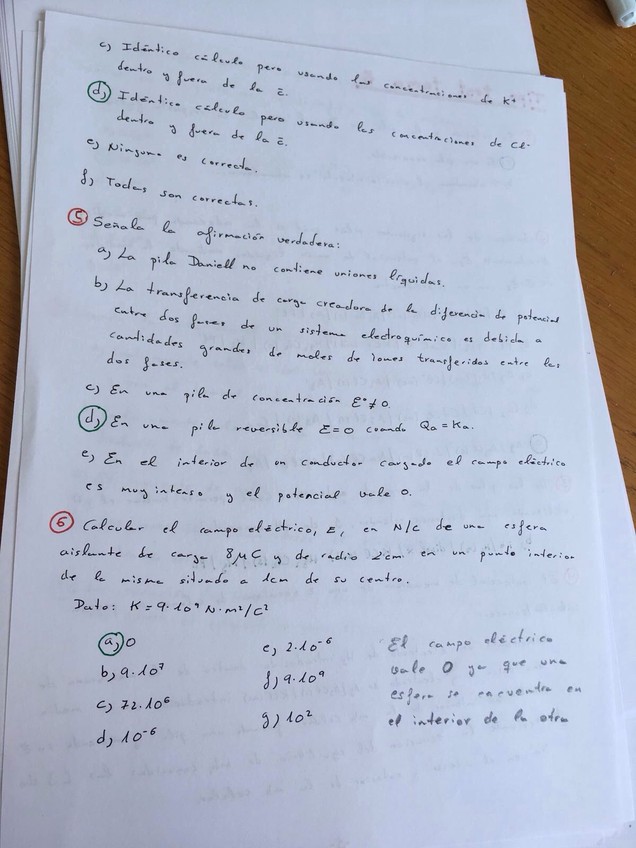 c) Idéntico cálculo pero usando las concentraciones de K+
dentro y fuera de la c̄.
d) Idéntico cálculo pero usando las concentraciones de Cl-
dentro y fuera de la c̄.
e) Ninguna es correcta.
f) Todas son correctas.
5 Señala la afirmación verdadera:
a) La pila Daniell no contiene uniones líquidas.
b) La transferencia de carga creadora de la diferencia de potencial
entre dos fases de un sistema electroquímico es debida a
cantidades grandes de moles de iones transferidos entre las
dos fases.
c) En una pila de concentración E°≠0.
d) En una pila reversible E=0 cuando Qa=Ka.
e) En el interior de un conductor cargado el campo eléctrico
es muy intenso y el potencial vale 0.
6 Calcular el campo eléctrico, E, en N/C de una esfera
aislante de carga 8μC y de radio 2cm en un punto interior
de la misma situado a 1cm de su centro.
Dato: K=9·10⁹ N·m²/C²
a) 0
b) 9·10⁷
c) 72·10⁶
d) 10⁻⁶
e) 2·10⁻⁶
f) 9·10⁹
g) 10²
El campo eléctrico
vale 0 ya que una
esfera se encuentra en
el interior de la otra